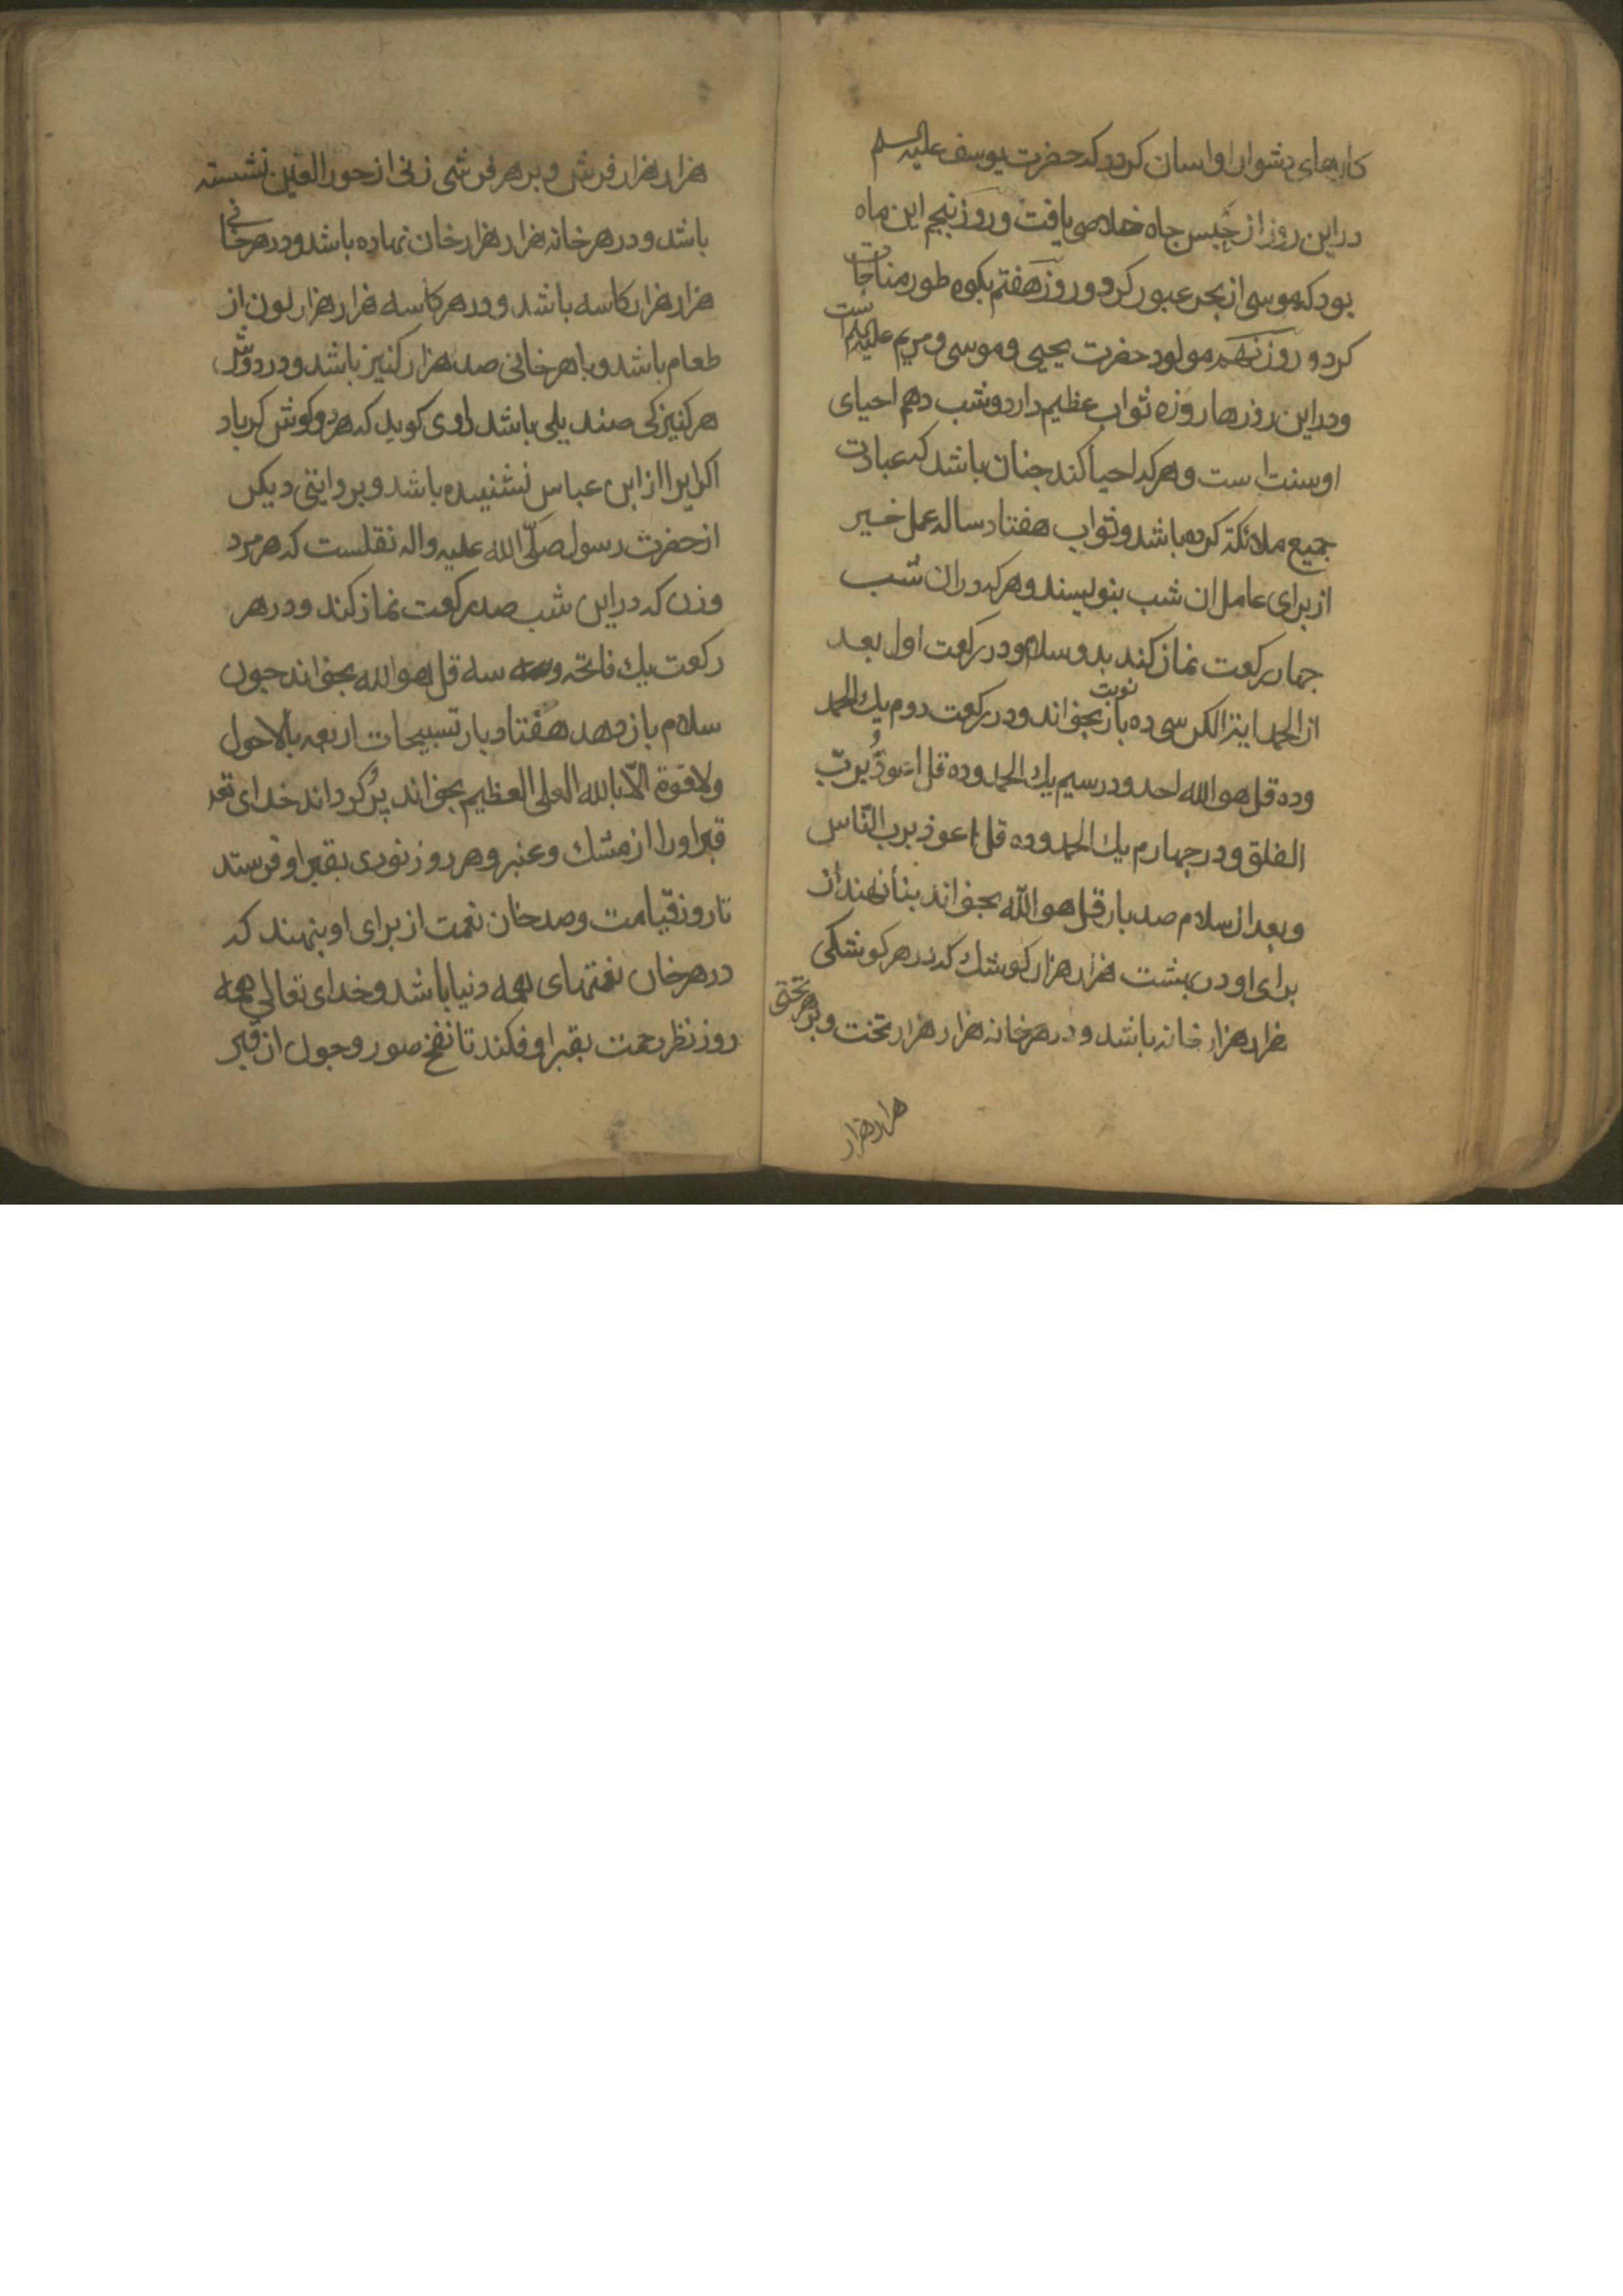 کارهای دشوار او اسان کردد که حضرت یوسف علیه السلم
در این روز از حبس جاه خلاصی یافت و روز پنجم این ماه
بود که موسی از بحر عبور کرد و روز هفتم بکوه طور مناجات
کرد و روز نهم مولود حضرت یحیی و موسی و مریم علیهم السلم است
و در این روزها روزه ثواب عظیم دارد و شب دهم احیای
او سنت است و هر که احیا کند جنان باشد که عبادت
جمیع ملائکة کرده باشد و ثواب هفتاد ساله عمل خیر
از برای عامل ان شب بنویسند و هر که در ان شب
جهار رکعت نماز کند بدو سلام و در رکعت اول بعد
از الحمد ایة الکرسی ده بار نوبت بخواند و در رکعت دوم یك الحمد
و ده قل هو الله احد و در سیم یك الحمد و ده قل اعوذ برب
الفلق و در جهارم یك الحمد و ده قل اعوذ برب الناس
و بعد از سلام صد بار قل هو الله بخواند بنا نهند از
برای او در بهشت هزار هزار کوشك که در هر کوشکی
هزار هزار خانه باشد و در هر خانه هزار هزار تخت و بر هر تختی
هزار هزار
هزار هزار فرش و بر هر فرشی زنی از حور العین نشسته
باشد و در هر خانه هزار هزار خان نهاده باشد و در هر خانی
هزار هزار کاسه باشد و در هر کاسه هزار هزار لون از
طعام باشد و با هر خانی صد هزار کنیز باشد و در دوش
هر کنیزکی مندیلی باشد راوی کوید که هر دو کوش کر باد
اکر این را از ابن عباس نشنیده باشد و بروایتی دیکر
از حضرت رسول صلّی الله علیه واله نقلست که هر مرد
و زن که در این شب صد رکعت نماز کند و در هر
رکعت یك فاتحه و سه قل هو الله بخواند جون
سلام باز دهد هفتاد بار تسبیحات اربعه با لاحول
ولا قوة الّا بالله العلی العظیم بخواند پُر کرداند خدای تعه
قبر او را از مشك و عنبر و هر روز نوری بقبر او فرستد
تا روز قیامت و صد خان نعمت از برای او بنهند که
در هر خان نعمتهای همه دنیا باشد و خدای تعالی همه
روز نظر رحمت بقبر او فکند تا نفخ صور و جون از قبر